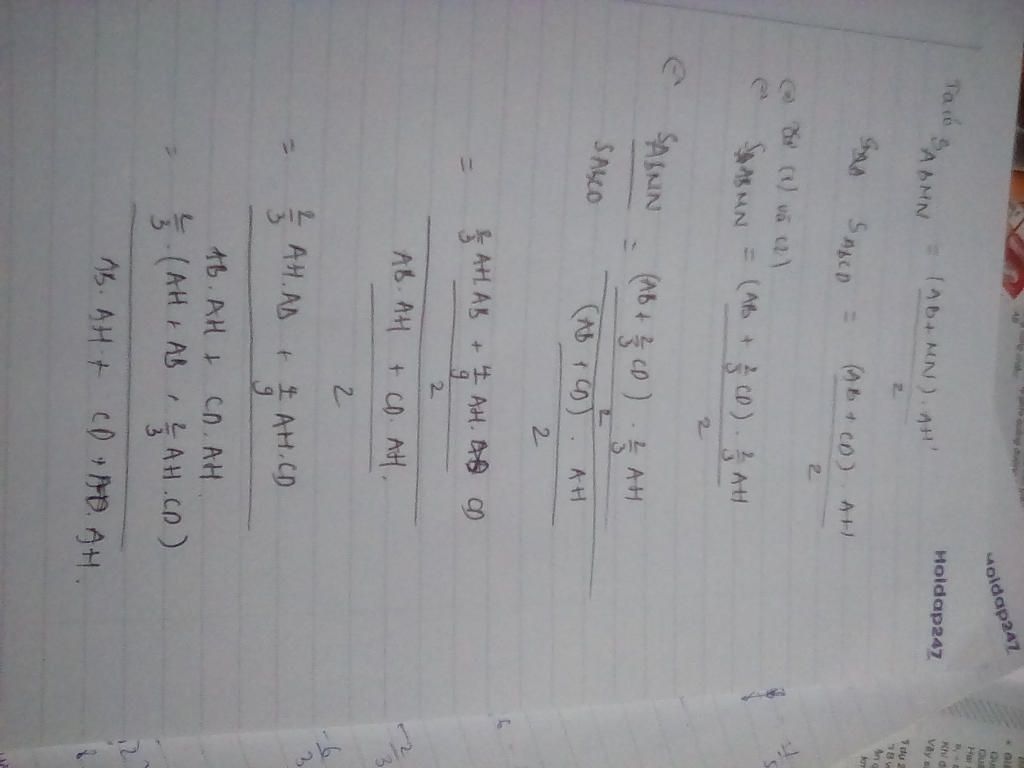 Ta có S ABMN = (AB + MN). AH'
2
S ABCD = (AB + CD). AH
2
Từ (1) và (2)
S ABMN = (AB + 2/3 CD). 2/3 AH
2
S ABMN = (AB + 2/3 CD). 2/3 AH
2
S ABCD (AB + CD). AH
2
= 2/3 AH AB + 4/9 AH. CD
2
AB. AH + CD. AH.
2
= 2/3 AH. AB + 4/9 AH. CD
AB. AH + CD. AH.
= 2/3 . (AH + AB + 2/3 AH. CD)
AB. AH + CD + AH.
Hoidap247
Hoidap247